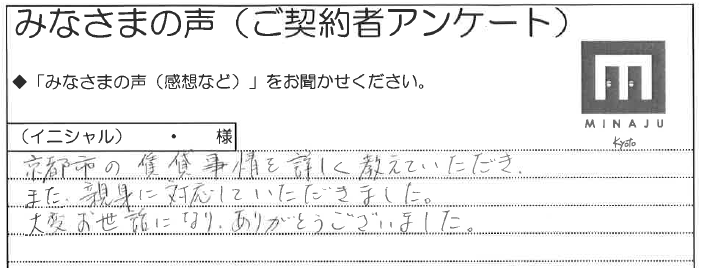 みなさまの声（ご契約者アンケート）
◆「みなさまの声（感想など）」をお聞かせください。
MINAJU
Kyoto
（イニシャル）　・　様
京都市の賃貸事情を詳しく教えていただき、
また、親身に対応していただきました。
大変お世話になり、ありがとうございました。